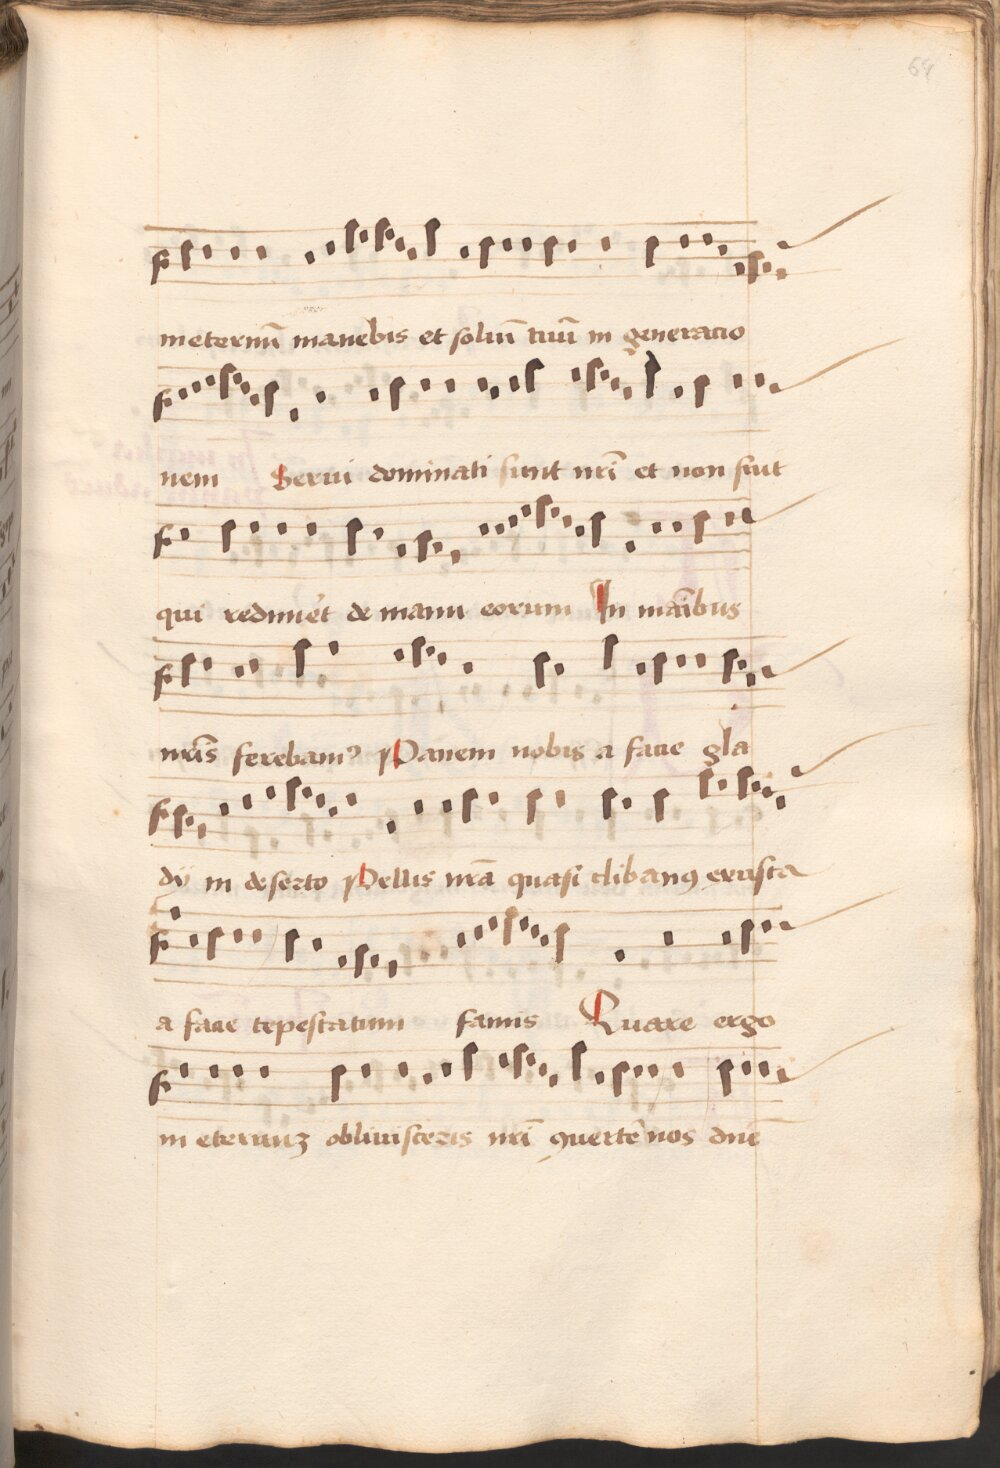 64
in eternū manebis et soliū tuū in generacio
nem Serui dominati sunt nr̄i et non fuit
qui redimēt de manu eorum In māibus
nr̄is ferebamꝰ Panem nobis a facie gla
dÿ in deserto Pellis nr̄a quasi clibanꝯ exusta
a facie tēpestatum famis Quare ergo
in eternuꝫ obliuisceris nr̄i ꝯuertē nos dn̄e